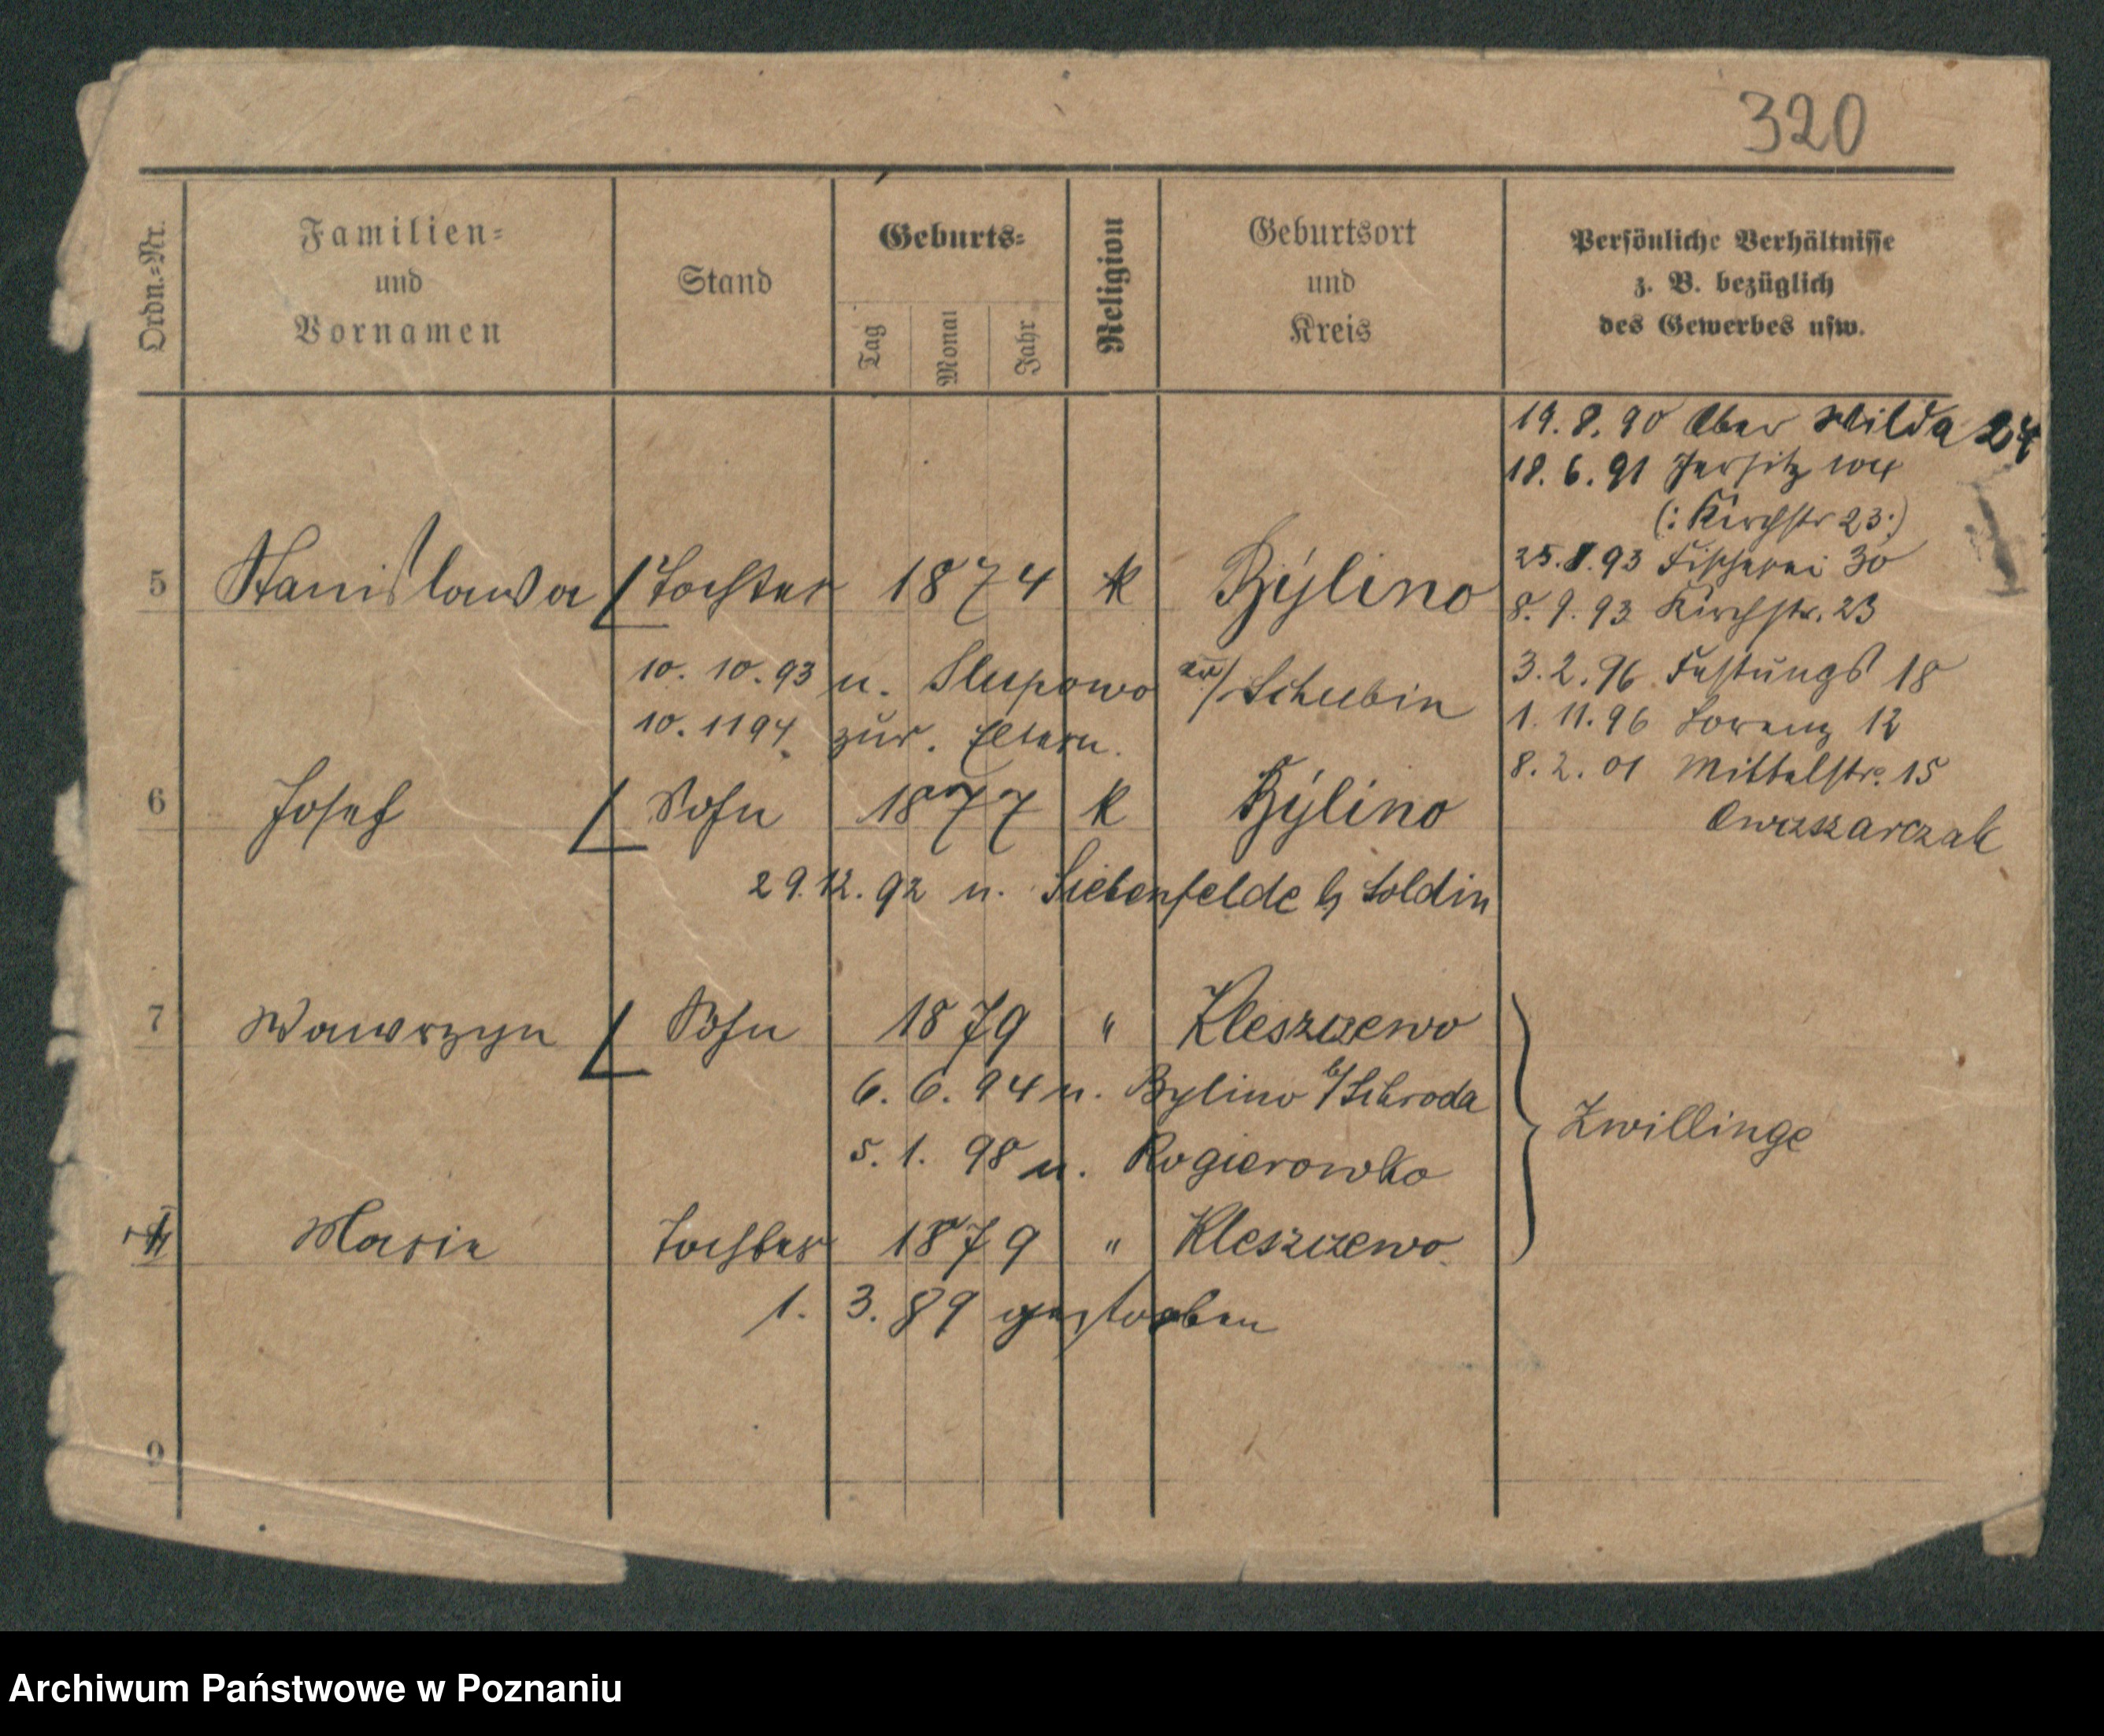 320
Ordn.=Nr.
Familien=
und
Vornamen
Stand
Geburts=
Tag
Monat
Jahr
Religion
Geburtsort
und
Kreis
Persönliche Verhältnisse
z. B. bezüglich
des Gewerbes usw.
19.8.90 Ober Wilda 24
18.6.91 Jersitz
(: Kirchstr 23 :)
25.8.93 Fischerei 30
8.9.93 Kirchstr. 23
3.2.96 Festungs 18
1.11.96 Lorenz 12
8.2.01 Mittelstr. 15
Owczarczak
5 Stanislawa Tochter 1874 k Bylino
10.10.93 n. Slupowo Schubin
10.11 94. zur. Eltern.
6 Josef Sohn 1877 k Bylino
29.12.92 n. Siebenfelde b Soldin
7 Wawrzyn Sohn 1879 " Kleszczewo
6.6.94 n. Bylino b/Schroda
5.1.98 n. Rogierowko
Zwillinge
Marie Tochter 1879 " Kleszczewo.
1.3.89 gestorben
9
Archiwum Państwowe w Poznaniu